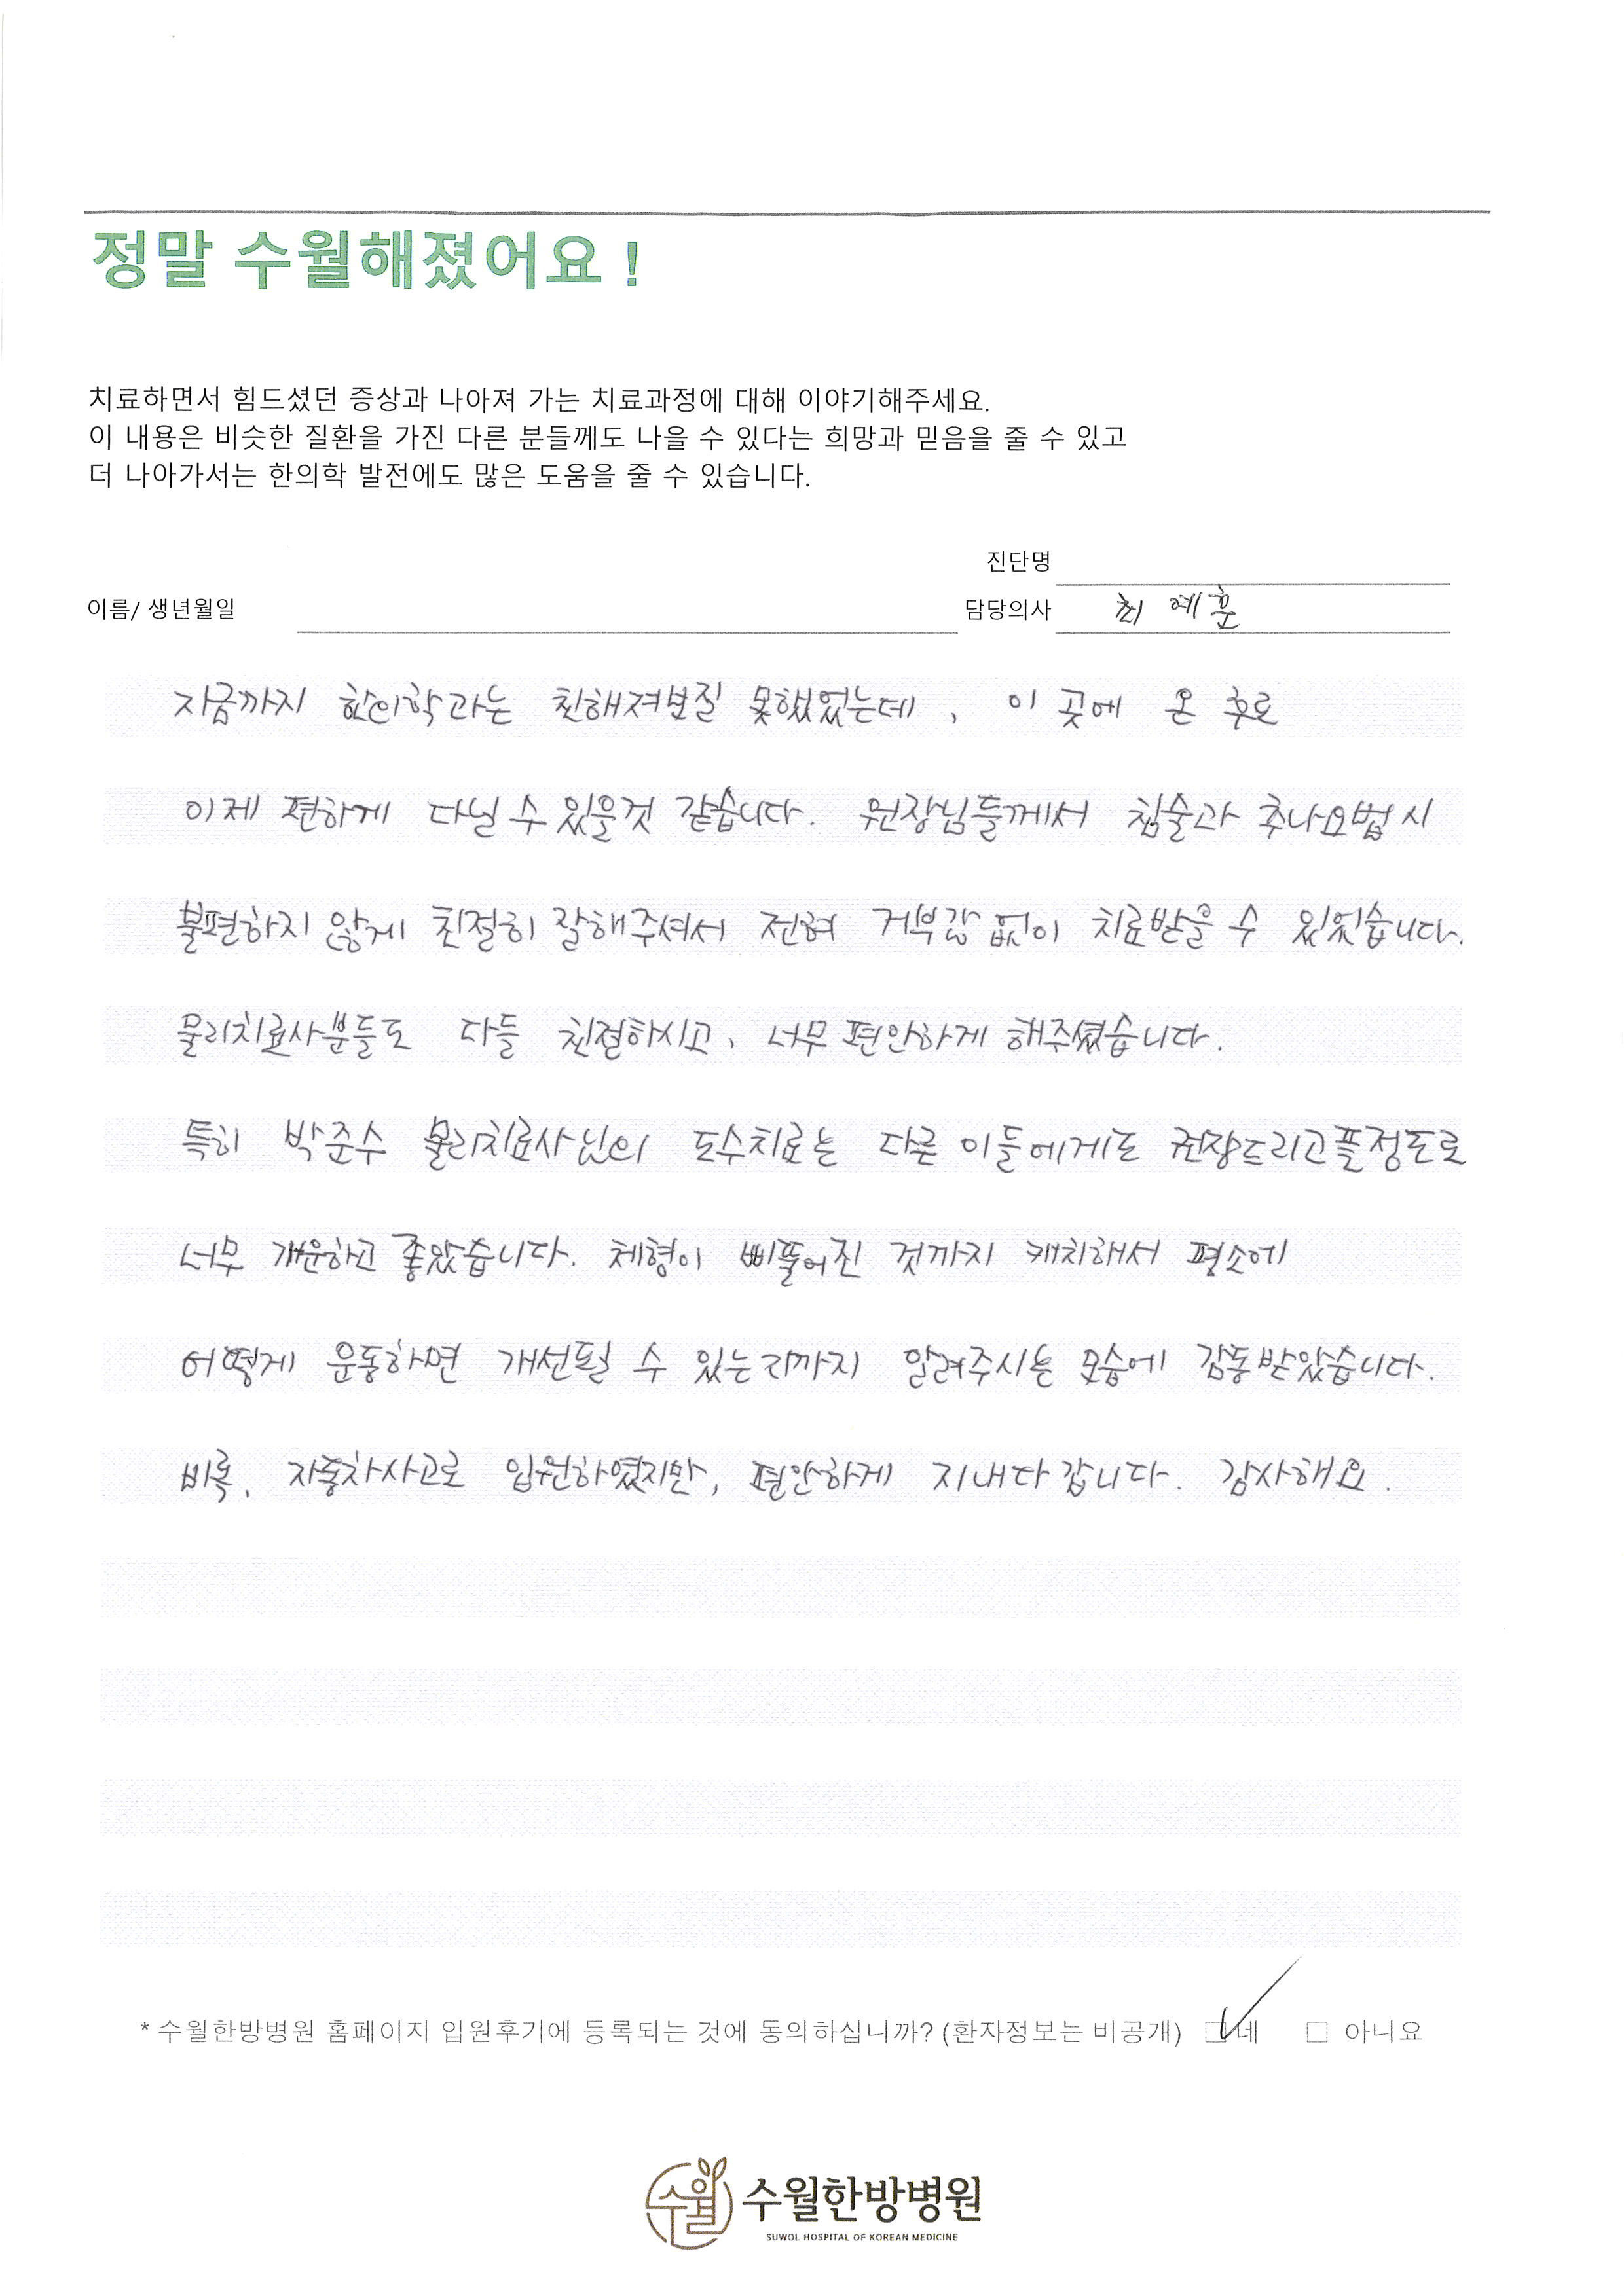 정말 수월해졌어요 !
치료하면서 힘드셨던 증상과 나아져 가는 치료과정에 대해 이야기해주세요.
이 내용은 비슷한 질환을 가진 다른 분들께도 나을 수 있다는 희망과 믿음을 줄 수 있고
더 나아가서는 한의학 발전에도 많은 도움을 줄 수 있습니다.
진단명
이름/ 생년월일 담당의사 최예훈
지금까지 한의학과는 친해져보질 못했었는데, 이 곳에 온 후로
이제 편하게 다닐 수 있을것 같습니다. 원장님들께서 침술과 추나요법 시
불편하지 않게 친절히 잘해주셔서 전혀 거부감 없이 치료받을 수 있었습니다.
물리치료사분들도 다들 친절하시고, 너무 편안하게 해주셨습니다.
특히 박준수 물리치료사님의 도수치료는 다른 이들에게도 권장드리고플정도로
너무 개운하고 좋았습니다. 체형이 삐뚤어진 것까지 캐치해서 평소에
어떻게 운동하면 개선될 수 있는지까지 알려주시는 모습에 감동받았습니다.
비록, 자동차사고로 입원하였지만, 편안하게 지내다 갑니다. 감사해요.
* 수월한방병원 홈페이지 입원후기에 등록되는 것에 동의하십니까? (환자정보는 비공개) 네 아니요
수월 수월한방병원
SUWOL HOSPITAL OF KOREAN MEDICINE